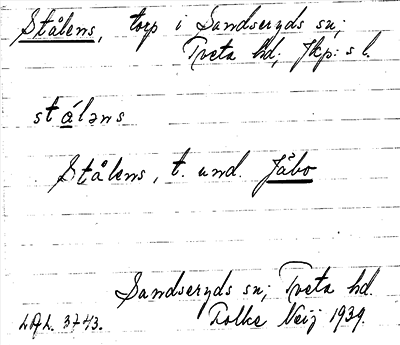 Stålens, torp i Sandseryds sn;
Tveta hd; Jkp: s l.
stálǝns
Stålens, t. und. Jåbo
Sandseryds sn; Tveta hd.
L.A.L. 3743. Folke Neij 1939.